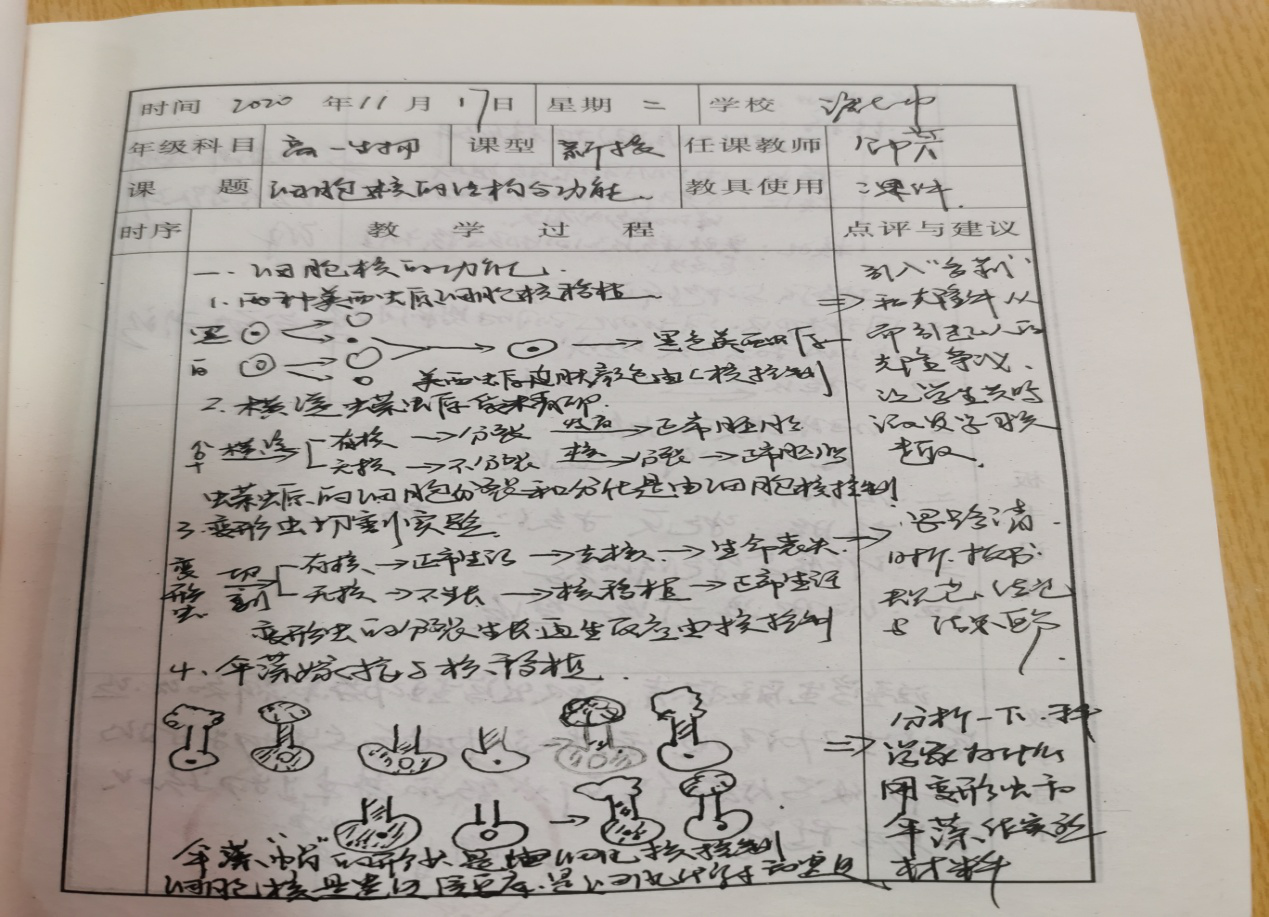 时间 2020 年 11 月 17 日 星期 二 学校
年级科目 高一生物 课型 新授 任课教师
课题 细胞核的结构与功能 教具使用 课件
时序 教学过程 点评与建议
一、细胞核的功能.
1. 两种美西螈细胞核移植
黑
白
黑色美西螈
美西螈皮肤颜色由细胞核控制
2. 横缢蝾螈受精卵
横缢 有核 → 分裂 → 正常胚胎
无核 → 不分裂 核 → 分裂 → 正常胚胎
蝾螈的细胞分裂和分化是由细胞核控制
3. 变形虫切割实验
变形虫 切割 有核 → 正常生活 → 去核 → 生命丧失
无核 → 不生长 → 核移植 → 正常生活
变形虫的分裂生长再生反应由核控制
4. 伞藻嫁接与核移植.
伞藻"帽"的形状是由细胞核控制
细胞核是遗传信息库.是细胞代谢
⇒ 引入"
和克隆牛从
而引起人的
克隆争议.
让学生共鸣
⇒ 思路清
晰.板书
⇒ 分析一下.科
学家为什么
用变形虫和
伞藻作实验
材料